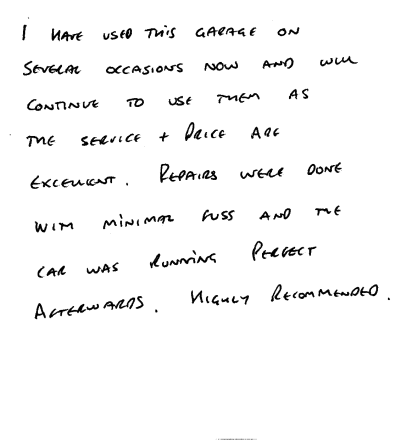 I HAVE USED THIS GARAGE ON
SEVERAL OCCASIONS NOW AND WILL
CONTINUE TO USE THEM AS
THE SERVICE + PRICE ARE
EXCELLENT. REPAIRS WERE DONE
WITH MINIMAL FUSS AND THE
CAR WAS RUNNING PERFECT
AFTERWARDS. HIGHLY RECOMMENDED.